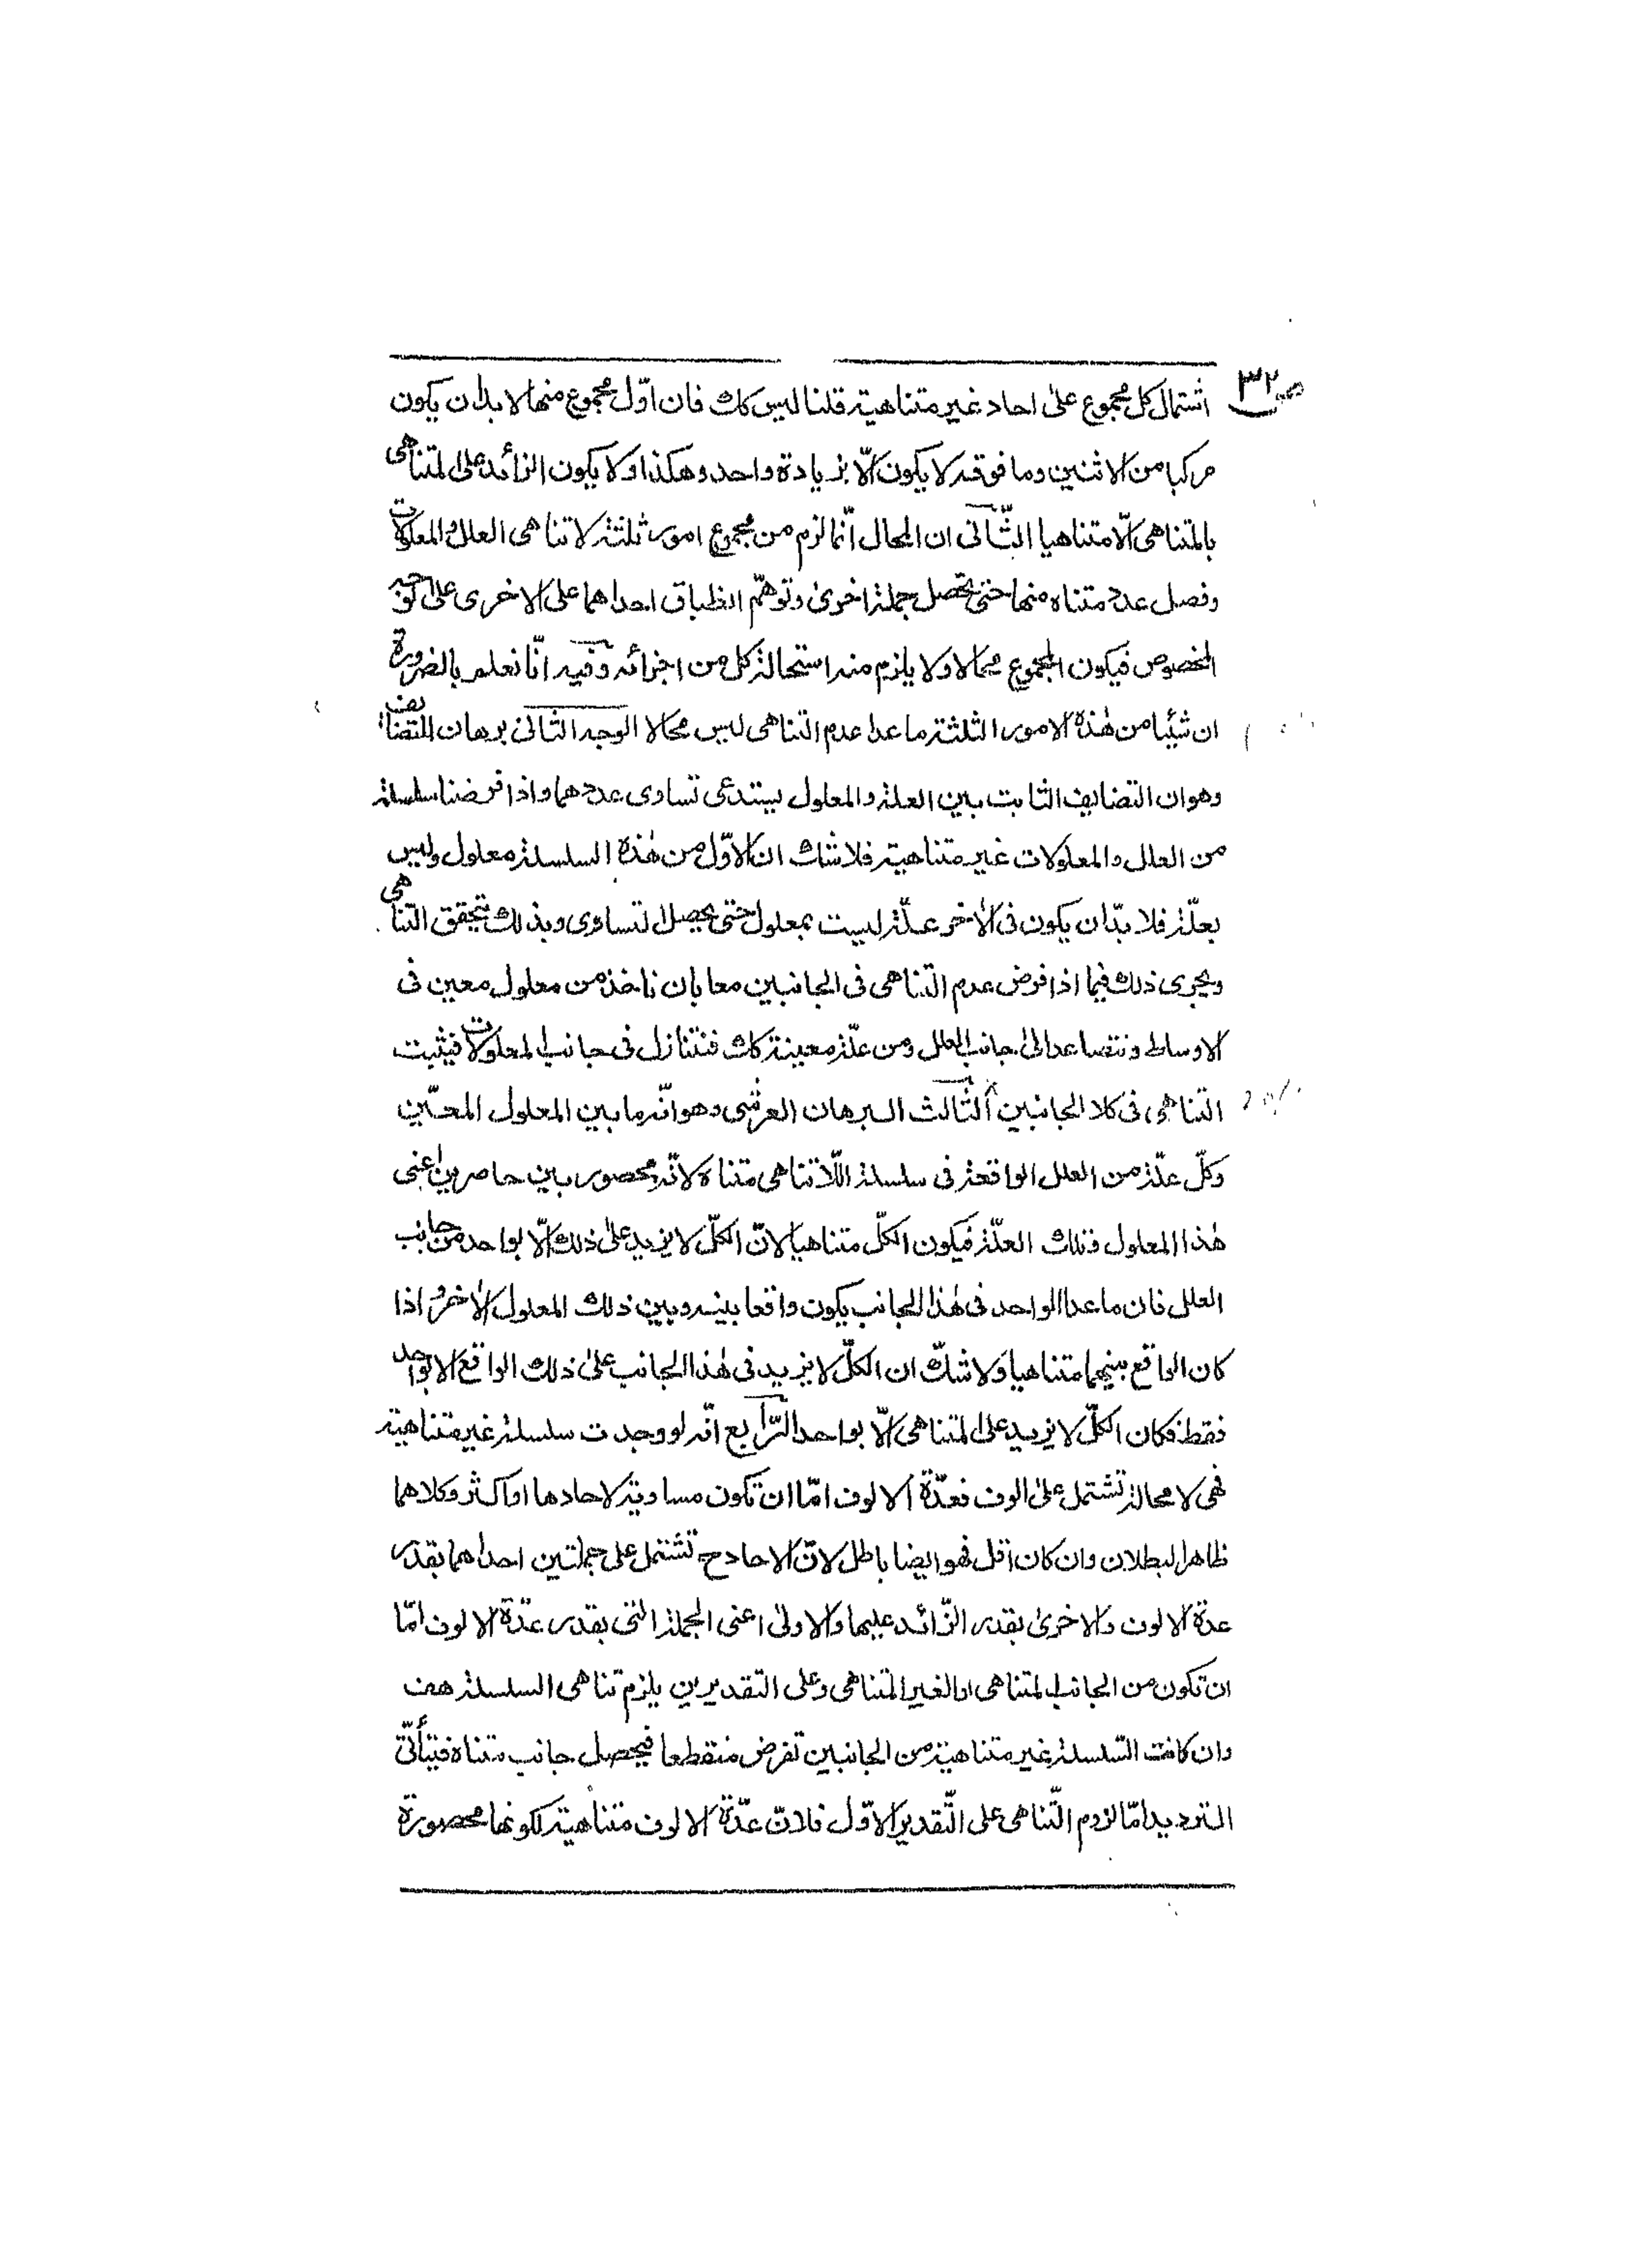 ص ٣٢
اشتمال كل مجموع على احاد غير متناهية قلنا ليس كك فان اوّل مجموع منها لا بد ان يكون
مركبا من الاثنين وما فوقه لا يكون الّا بزيادة واحد وهكذا ولا يكون الزائد على المتناهى
بالمتناهى الّا متناهيا الثّانى ان المحال انّما لزم من مجموع امور ثلثة لا تناهى العلل والمعلولات
وفصل عدد متناه منها حتى تحصل جملة اخرى وتوهّم انطباق احداهما على الاخرى على الوجه
المخصوص فيكون المجموع محالا ولا يلزم منه استحالة كل من اجزائه وفيه انّا نعلم بالضرورة
ان شيئا من هذه الامور الثلثة ما عدا عدم التناهى ليس محالا الوجه الثانى برهان التضايف
وهو ان التضايف الثابت بين العلة والمعلول يستدعى تساوى عددهما واذا فرضنا سلسلة
من العلل والمعلولات غير متناهية فلا شك ان الاوّل من هذه السلسلة معلول وليس
بعلّة فلا بدّ ان يكون فى الآخر علّة ليست بمعلول حتى يحصل التساوى وبذلك يتحقق التناهى
ويجرى ذلك فيما اذا فرض عدم التناهى فى الجانبين معا بان ناخذ من معلول معين فى
الاوساط ونتصاعد الى جانب العلل ومن علّة معينة كك فنتنازل فى جانب المعلولات فيثبت
التناهى فى كلا الجانبين الثّالث البرهان العرشى وهو انّه ما بين المعلول المعيّن
وكلّ علّة من العلل الواقعة فى سلسلة اللّا تناهى متناه لانّه محصور بين حاصرين اعنى
هذا المعلول وتلك العلّة فيكون الكلّ متناهيا لانّ الكلّ لا يزيد على ذلك الّا بواحد من جانب
العلل فان ما عدا الواحد فى هذا الجانب يكون واقعا بينه وبين ذلك المعلول الآخر واذا
كان الواقع بينهما متناهيا ولا شكّ ان الكلّ لا يزيد فى هذا الجانب على ذلك الواقع الا بواحد
فقط فكان الكلّ لا يزيد على المتناهى الّا بواحد الرّابع انّه لو وجدت سلسلة غير متناهية
فهى لا محالة تشتمل على الوف فعدّة الالوف امّا ان تكون مساوية لاحادها او اكثر وكلاهما
ظاهر البطلان وان كان اقل فهو ايضا باطل لانّ الاحاد ح تشتمل على جملتين احداهما بقدر
عدة الالوف والاخرى بقدر الزّائد عليها والاولى اعنى الجملة التى بقدر عدّة الالوف امّا
ان تكون من الجانب المتناهى او الغير المتناهى وعلى التقديرين يلزم تناهى السلسلة هف
وان كانت السّلسلة غير متناهية من الجانبين تفرض منقطعا فيحصل جانب متناه فيتأتّى
الترديد امّا لزوم التّناهى على التّقدير الاوّل فلانّ عدّة الالوف متناهية لكونها محصورة